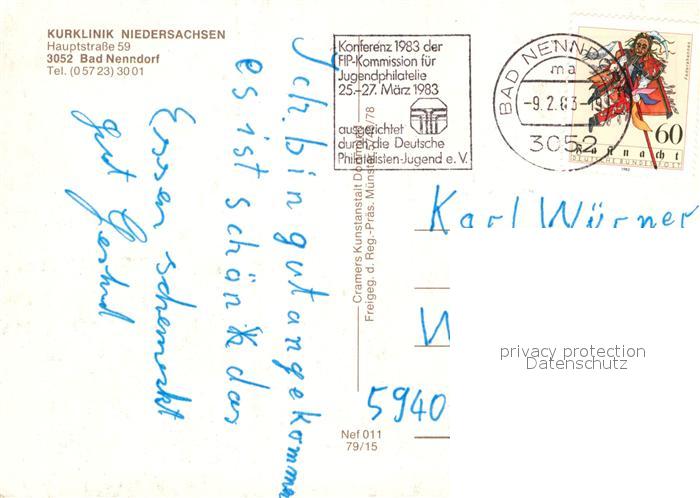 KURKLINIK NIEDERSACHSEN
Hauptstraße 59
3052 Bad Nenndorf
Tel. (0 57 23) 30 01
Konferenz 1983 der
FIP-Kommission für
Jugendphilatelie
25.-27. März 1983
ausgerichtet
durch die Deutsche
Philatelisten-Jugend e. V.
BAD NENNDO
ma
-9.2.83-19
3052
60
Fastnacht
DEUTSCHE BUNDESPOST
1983
Ich bin gut angekomm
es ist schön k das
Essen schemeckt
gut
Cramers Kunstanstalt Dortmund
Freigeg. d. Reg.-Präs. Münster 5740/78
Karl Würner
W
5940
Nef 011
79/15
privacy protection
Datenschutz